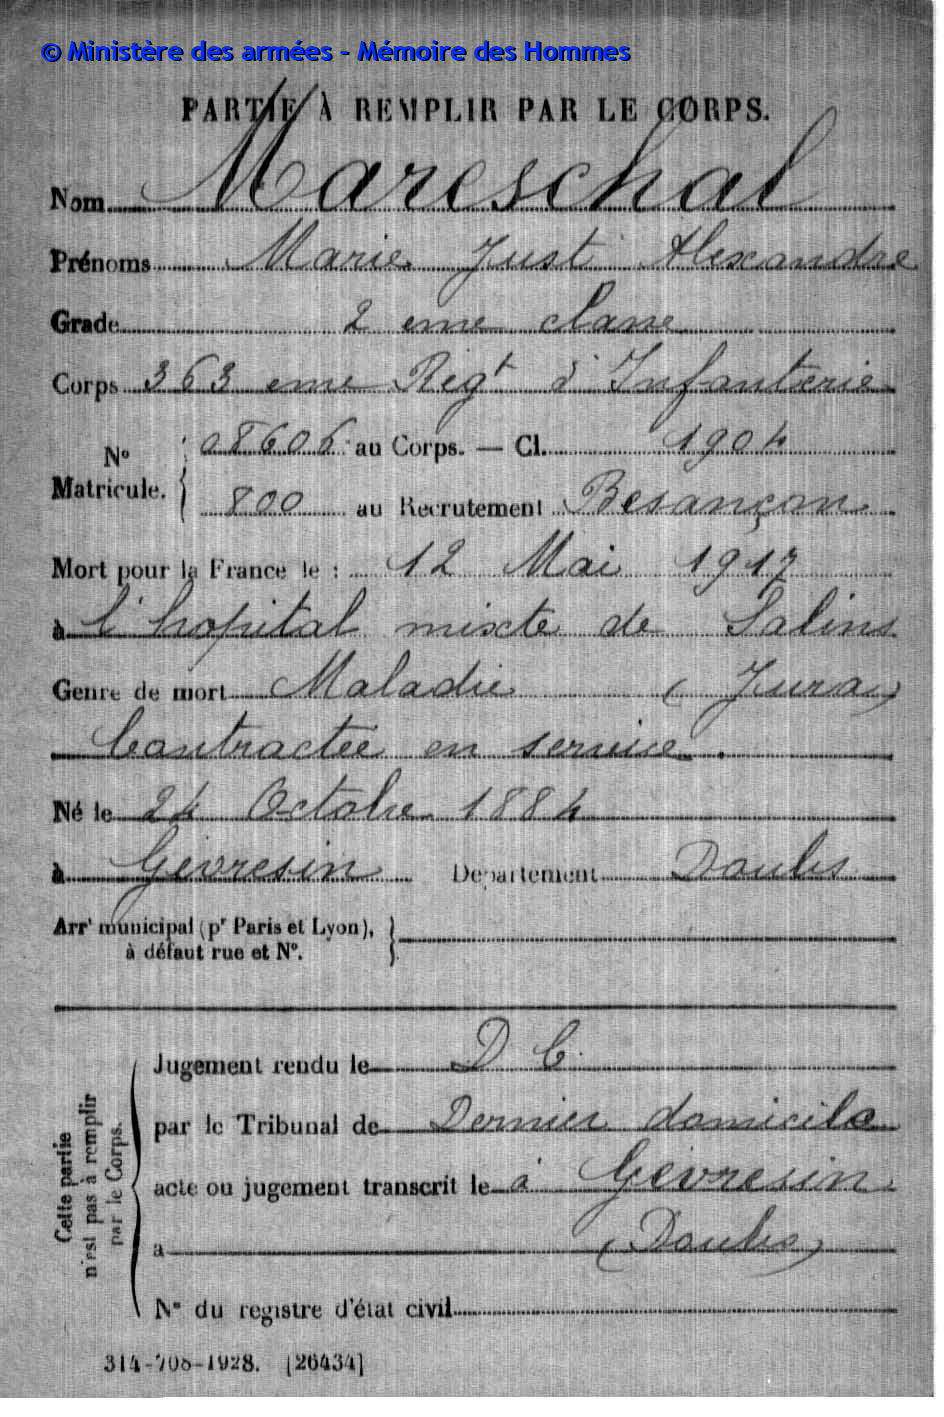 © Ministère des armées - Mémoire des Hommes
PARTIE À REMPLIR PAR LE CORPS.
Nom Mareschal
Prénoms Marie Just Alexandre
Grade 2 eme classe
Corps 363 eme Régt d'Infanterie
N° Matricule. { 08606 au Corps. — Cl. 1904
800 au Recrutement Besançon
Mort pour la France le : 12 Mai 1917
à l'hopital mixte de Salins
Genre de mort Maladie (Jura)
Contractée en service.
Né le 24 Octobre 1884
à Gevresin Département Doubs
Arrt municipal (pr Paris et Lyon), }
à défaut rue et N°.
Cette partie n'est pas à remplir par le Corps.
Jugement rendu le D C
par le Tribunal de Dernier domicile
acte ou jugement transcrit le à Gevresin
à (Doubs)
N° du registre d'état civil
314-708-1928. [26434]